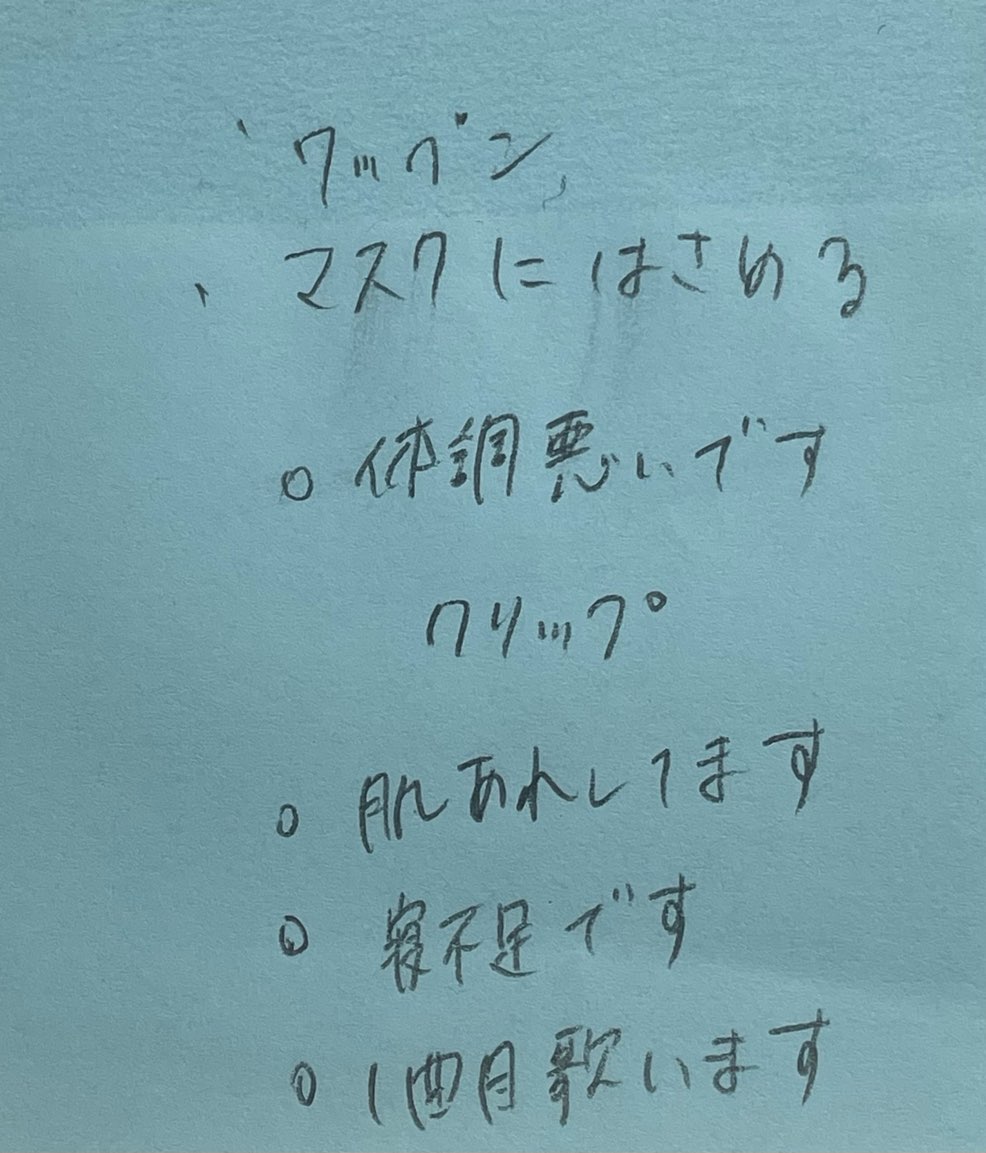 、ワッペン、
、マスクにはさめる
○ 体調悪いです
クリップ
○ 肌あれしてます
○ 寝不足です
○ 1曲目歌います